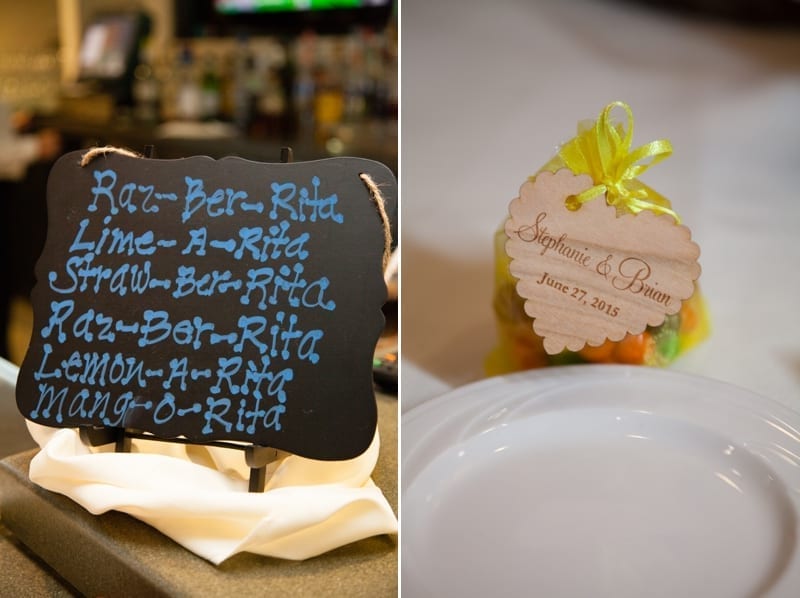 Raz-Ber-Rita
Lime-A-Rita
Straw-Ber-Rita
Raz-Ber-Rita
Lemon-A-Rita
Mang-O-Rita
Stephanie & Brian
June 27, 2015